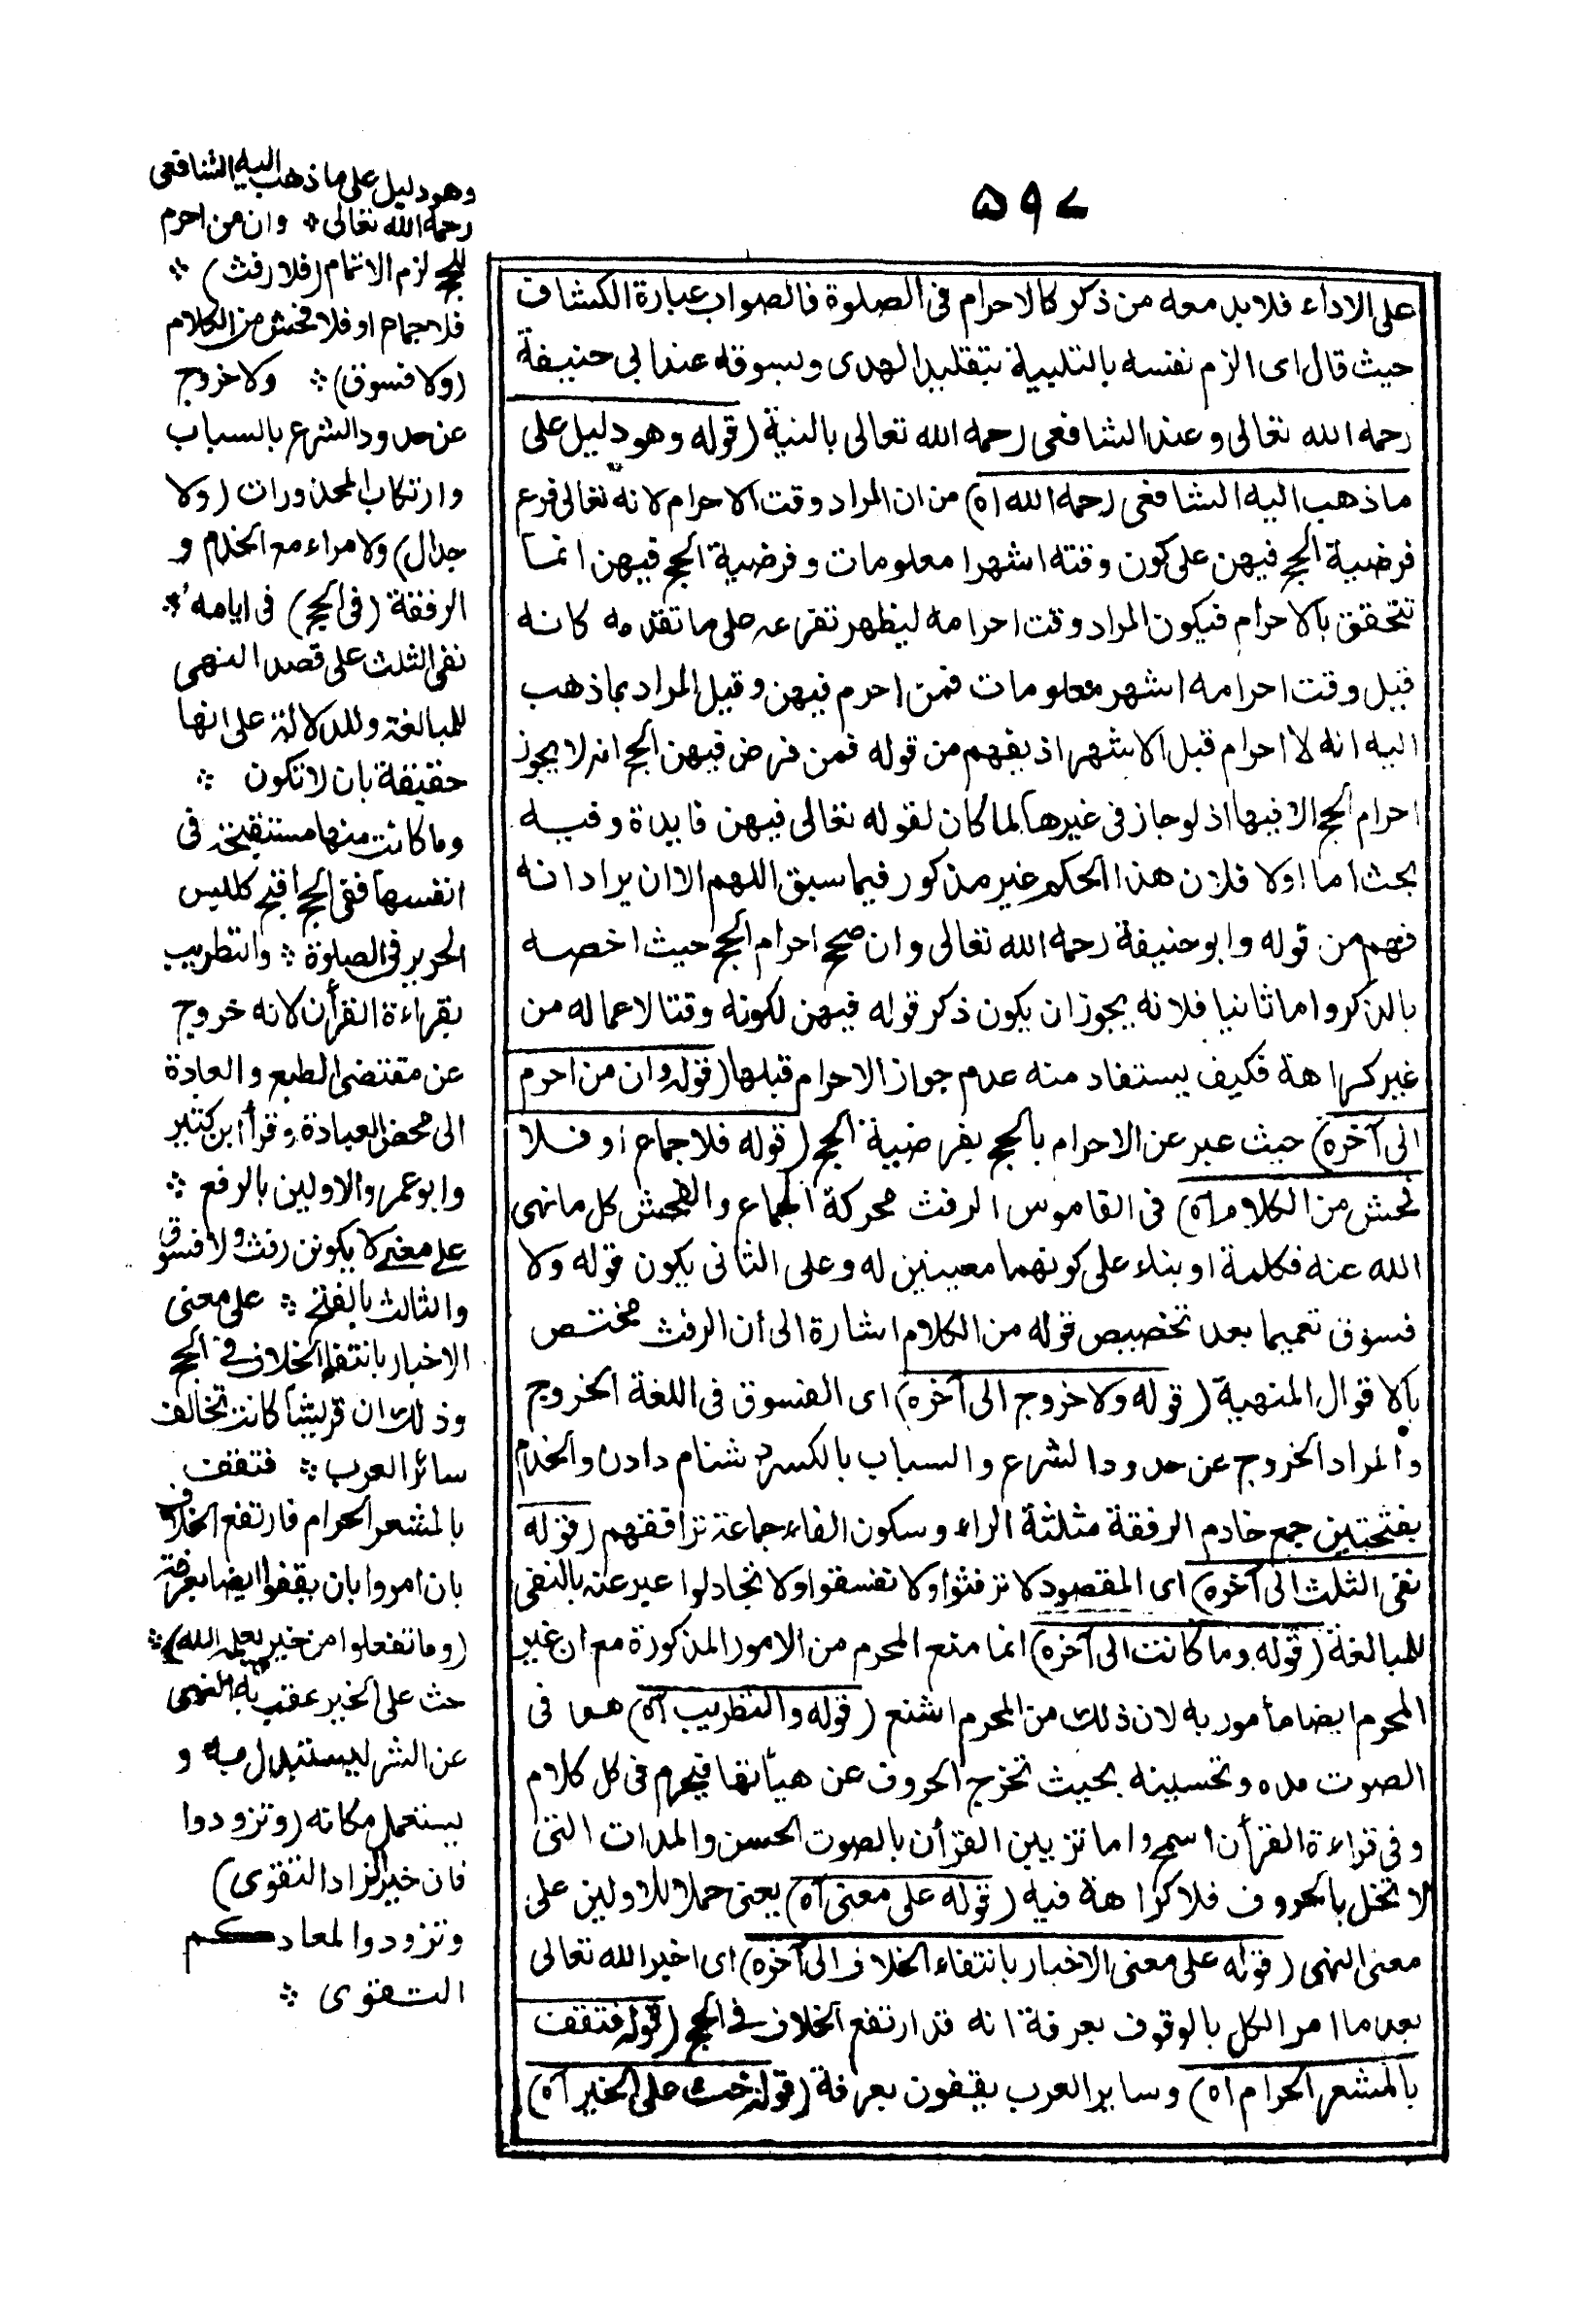 ۵۹۷
على الاداء فلابد معه من ذكر كالاحرام فى الصلوة فالصواب عبارة الكشاف
حيث قال اى الزم نفسه بالتلبية بتقليد الهدى وسوقه عند ابى حنيفة
رحمه الله تعالى وعند الشافعى رحمه الله تعالى بالنية (قوله وهو دليل على
ما ذهب اليه الشافعى رحمه الله اه) من ان المراد وقت الاحرام لانه تعالى فرع
فرضية الحج فيهن على كون وقته اشهرا معلومات وفرضية الحج فيهن انما
تتحقق بالاحرام فيكون المراد وقت احرامه ليظهر تفرعه على ما تقدمه كانه
قيل وقت احرامه اشهر معلومات فمن احرم فيهن وقيل المراد بما ذهب
اليه انه لا احرام قبل الاشهر اذ يفهم من قوله فمن فرض فيهن الحج انه لا يجوز
احرام الحج الا فيها اذ لو جاز فى غيرها لما كان لقوله تعالى فيهن فايدة وفيه
بحث اما اولا فلان هذا الحكم غير مذكور فيما سبق اللهم الا ان يراد انه
فهم من قوله وابو حنيفة رحمه الله تعالى وان صحح احرام الحج حيث اخصه
بالذكر واما ثانيا فلانه يجوز ان يكون ذكر قوله فيهن لكونه وقتا لاعماله من
غير كراهة فكيف يستفاد منه عدم جواز الاحرام قبلها (قوله وان من احرم
الى آخره) حيث عبر عن الاحرام بالحج بفرضية الحج (قوله فلا جماع او فلا
فحش من الكلام اه) فى القاموس الرفث محركة الجماع والفحش كل ما نهى
الله عنه فكلمة او بناء على كونهما معيينين له وعلى الثانى يكون قوله ولا
فسوق تعميما بعد تخصيص قوله من الكلام اشارة الى أن الرفث مختص
بالاقوال المنهية (قوله ولا خروج الى آخره) اى الفسوق فى اللغة الخروج
والمراد الخروج عن حدود الشرع والسباب بالكسر دشنام دادن والخدم
بفتحتين جمع خادم الرفقة مثلثة الراء وسكون الفاء جماعة ترافقهم (قوله
نفى الثلث الى آخره) اى المقصود لا ترفثوا ولا تفسقوا ولا تجادلوا عبر عنه بالنفى
للمبالغة (قوله وما كانت الى آخره) انما منع المحرم من الامور المذكورة مع ان غير
المحرم ايضا مأمور به لان ذلك من المحرم اشنع (قوله والتطريب آه) هو فى
الصوت مده وتحسينه بحيث تخرج الحروف عن هيأتها فيحرم فى كل كلام
وفى قراءة القرأن اسمج واما تزيين القرأن بالصوت الحسن والمدات التى
لا تخل بالحروف فلا كراهة فيه (قوله على معنى آه) يعنى حملا للاولين على
معنى النهى (قوله على معنى الاخبار بانتفاء الخلاف الى آخره) اى اخبر الله تعالى
بعد ما امر الكل بالوقوف بعرفة انه قد ارتفع الخلاف فى الحج (قوله فتقف
بالمشعر الحرام اه) وساير العرب يقفون بعرفة (قوله حث على الخير آه)
وهو دليل على ما ذهب اليه الشافعى
رحمه الله تعالى ⁘ وان من احرم
للحج لزم الاتمام (فلا رفث) ⁘
فلا جماع او فلا فحش من الكلام
(ولا فسوق) ⁘ ولا خروج
عن حدود الشرع بالسباب
وارتكاب المحذورات (ولا
جدال) ولا مراء مع الخدم و
الرفقة (فى الحج) فى ايامه ⁘
نفى الثلث على قصد النهى
للمبالغة وللدلالة على انها
حقيقة بان لا تكون ⁘
وما كانت منها مستقبحة فى
انفسها ففى الحج اقبح كلبس
الحرير فى الصلوة ⁘ والتطريب
بقراءة القرأن لانه خروج
عن مقتضى الطبع والعادة
الى محض العبادة وقرأ ابن كثير
وابو عمرو الاولين بالرفع ⁘
على معنى لا يكونن رفث ولا فسوق
والثالث بالفتح ⁘ على معنى
الاخبار بانتفاء الخلاف فى الحج
وذلك ان قريشا كانت تخالف
سائر العرب ⁘ فتقف
بالمشعر الحرام فارتفع الخلاف
بان امروا بان يقفوا ايضا بعرفة
(وما تفعلوا من خير يعلمه الله) ⁘
حث على الخير عقب به النهى
عن الشر ليستبدل به و
يستعمل مكانه (وتزودوا
فان خير الزاد التقوى)
وتزودوا لمعادكم
التقوى ⁘